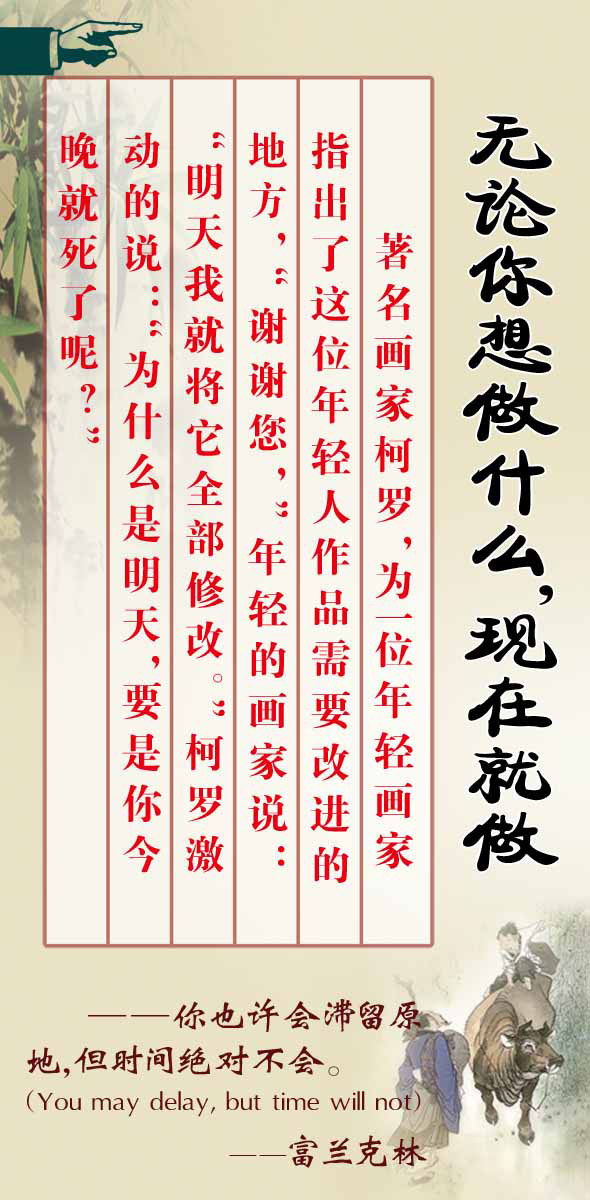 无论你想做什么,现在就做
著名画家柯罗,为一位年轻画家
指出了这位年轻人作品需要改进的
地方,“谢谢您,”年轻的画家说:
“明天我就将它全部修改。”柯罗激
动的说:“为什么是明天,要是你今
晚就死了呢?”
———你也许会滞留原
地,但时间绝对不会。
(You may delay, but time will not)
——富兰克林